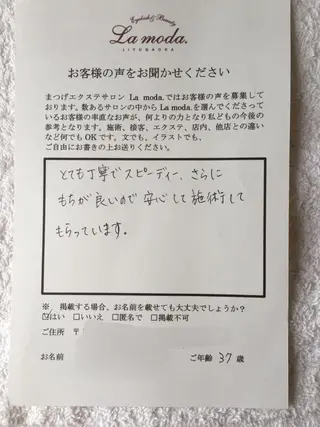 Eyelash & Beauty
La moda.
JIYUGAOKA
お客様の声をお聞かせください
まつげエクステサロン La moda.ではお客様の声を募集して
おります。数あるサロンの中から La moda.を選んでくださってい
るお客様の率直なお声が、何よりの力となり私どもの今後の
参考となります。施術、接客、エクステ、店内、他店との違い
など何でもOKです。文でも、イラストでも、
ご自由にお書きの上お送りください。
とても丁寧でスピーディー、さらに
もちが良いので安心して施術して
もらっています。
※ 掲載する場合、お名前を載せても大丈夫でしょうか?
☑はい □いいえ □匿名で □掲載不可
ご住所 〒
お名前 ご年齢 37 歳